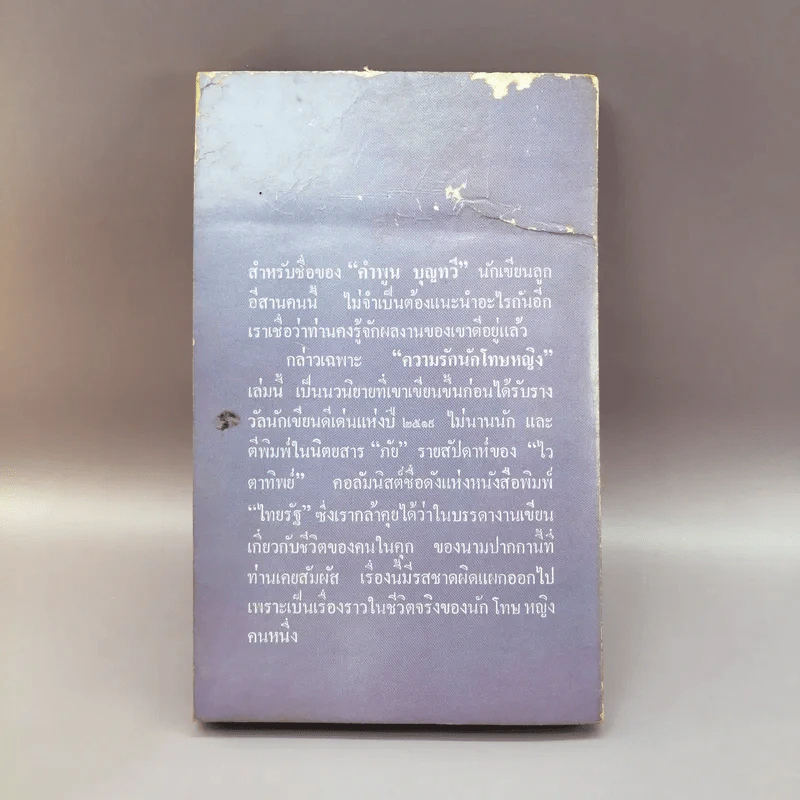 สำหรับชื่อของ “คำพูน บุญทวี” นักเขียนลูก
อีสานคนนี้ ไม่จำเป็นต้องแนะนำอะไรกันอีก
เราเชื่อว่าท่านคงรู้จักผลงานของเขาดีอยู่แล้ว
กล่าวเฉพาะ “ความรักนักโทษหญิง”
เล่มนี้ เป็นนวนิยายที่เขาเขียนขึ้นก่อนได้รับราง
วัลนักเขียนดีเด่นแห่งปี ๒๕๑๙ ไม่นานนัก และ
ตีพิมพ์ในนิตยสาร “ภัย” รายสัปดาห์ของ “ไว
ตาทิพย์” คอลัมนิสต์ชื่อดังแห่งหนังสือพิมพ์
“ไทยรัฐ” ซึ่งเรากล้าคุยได้ว่าในบรรดางานเขียน
เกี่ยวกับชีวิตของคนในคุก ของนามปากกานี้ที่
ท่านเคยสัมผัส เรื่องนี้มีรสชาดผิดแผกออกไป
เพราะเป็นเรื่องราวในชีวิตจริงของนัก โทษ หญิง
คนหนึ่ง